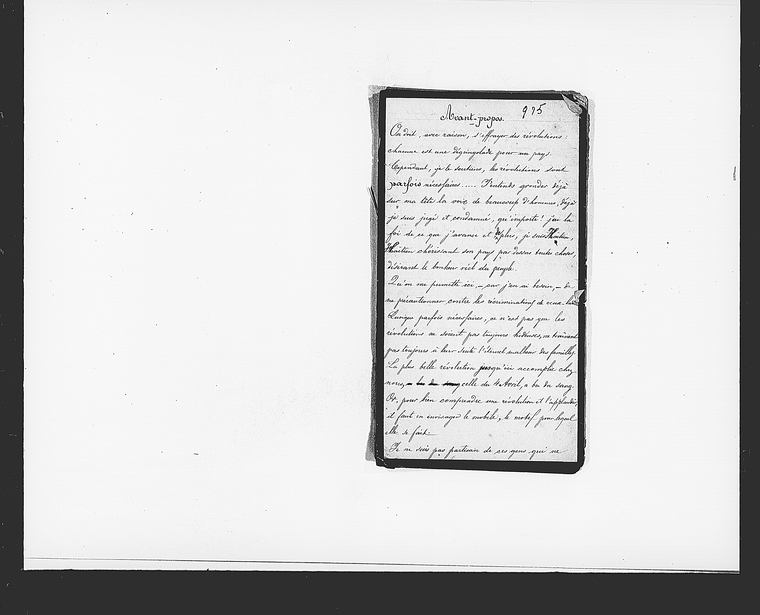 Avant-propos. 995
On doit, avec raison, s'effrayer des révolutions
chacune est une dégringolade pour un pays.
Cependant, je le soutiens, les révolutions sont
parfois nécessaires..... J'entends gronder déjà
sur ma tête la voix de beaucoup d'hommes, déjà
je suis jugé et condamné, qu'importe! j'ai la
foi de ce que j'avance et plus, je suis Haïtien,
Haïtien chérissant son pays par dessus toutes choses,
désirant le bonheur réel du peuple.
Qu'on me permette ici, — car j'en ai besoin, — de
me précautionner contre les récriminations de ceux
Quoique parfois nécessaires, ce n'est pas que les
révolutions ne soient pas toujours hideuses, ne traînent
pas toujours à leur suite l'éternel malheur des familles.
La plus belle révolution jusqu'ici accomplie chez
nous, celle du 4 Avril, a bu du sang.
Or, pour bien comprendre une révolution et l'applaudir
il faut en envisager le mobile, le motif pour lequel
elle se fait.
Je ne suis pas partisan de ces gens qui ne